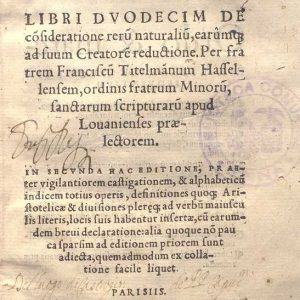 LIBRI DVODECIM DE
cõsideratione rerũ naturaliũ, earũmq;
ad suum Creatorẽ reductione. Per fra
trem Franciscũ Titelmãnum Hassel-
lensem, ordinis fratrum Minorũ,
sanctarum scripturarũ apud
Louanienses præ-
lectorem.
IN SECVNDA HAC EDITIONE, PRAE-
ter vigilantiorem castigationem, & alphabeticũ
indicem totius operis, definitiones quoq; Ari-
stotelicæ & diuisiones pleræq; ad verbũ maiuscu
lis literis, locis suis habentur insertæ, cũ earum-
dem breui declaratione: alia quoque nõ pau
ca sparsim ad editionem priorem sunt
adiecta, quemadmodum ex colla
tione facile liquet.
PARISIIS.